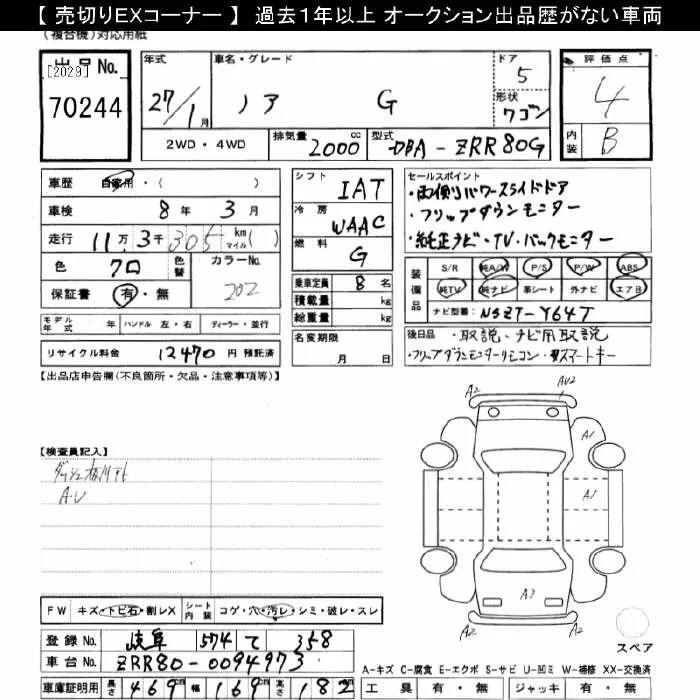 【 売切りEXコーナー 】 過去1年以上 オークション出品歴がない車両
(複合機)対応用紙
出品No.
[2029]
70244
年式
27/1月
車名・グレード
ノア G
ドア
5
形状
ワゴン
評価点
4
内装
B
2WD・4WD
排気量
2000 cc
型式
DBA-ZRR80G
車歴 自家用・( )
車検 8年 3月
走行 11万 3千 305 km マイル ( )
色 クロ 色替 カラーNo. 202
保証書 有・無
シフト
IAT
冷房
WAAC
燃料
G
乗車定員 8 名
積載量 kg
総重量 kg
名変期限
月 日
セールスポイント
・両側パワースライドドア
・フリップダウンモニター
・純正ナビ・TV・バックモニター
装備品
S/R 純A/W P/S P/W ABS
純TV 純ナビ 革シート 外ナビ エアB
ナビ型番: NSZT-Y64T
モデル年式 年 ハンドル 左・右 ディーラー・並行
リサイクル料金 12470 円 預託済
後日品 ・取説、ナビ取説
・フリップダウンモニターリモコン・スマートキー
【出品店申告欄(不良箇所・欠品・注意事項等)】
【検査員記入】
A・U
A2
AU2
A1
A1
A3
A2
A2
スペア
FW キズ・トビ石・割レX シート内装 コゲ・穴・汚レ・シミ・破レ・スレ
登録No. 岐阜 574 て 358
車台No. ZRR80-0094973
車庫証明用 長さ 469cm 幅 169cm 高さ 182
A-キズ C-腐食 E-エクボ S-サビ U-凹ミ W-補修 XX-交換済
工具 有・無 ジャッキ 有・無